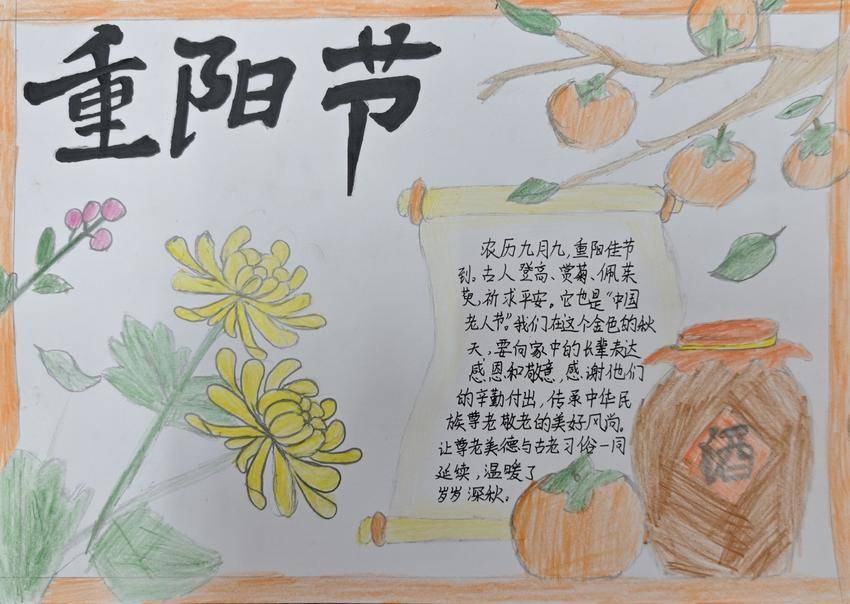 重阳节
农历九月九，重阳佳节
到。古人登高、赏菊、佩茱
萸，祈求平安。它也是“中国
老人节”。我们在这个金色的秋
天，要向家中的长辈表达
感恩和敬意，感谢他们
的辛勤付出，传承中华民
族尊老敬老的美好风尚。
让尊老美德与古老习俗一同
延续，温暖了
岁岁深秋。
酒